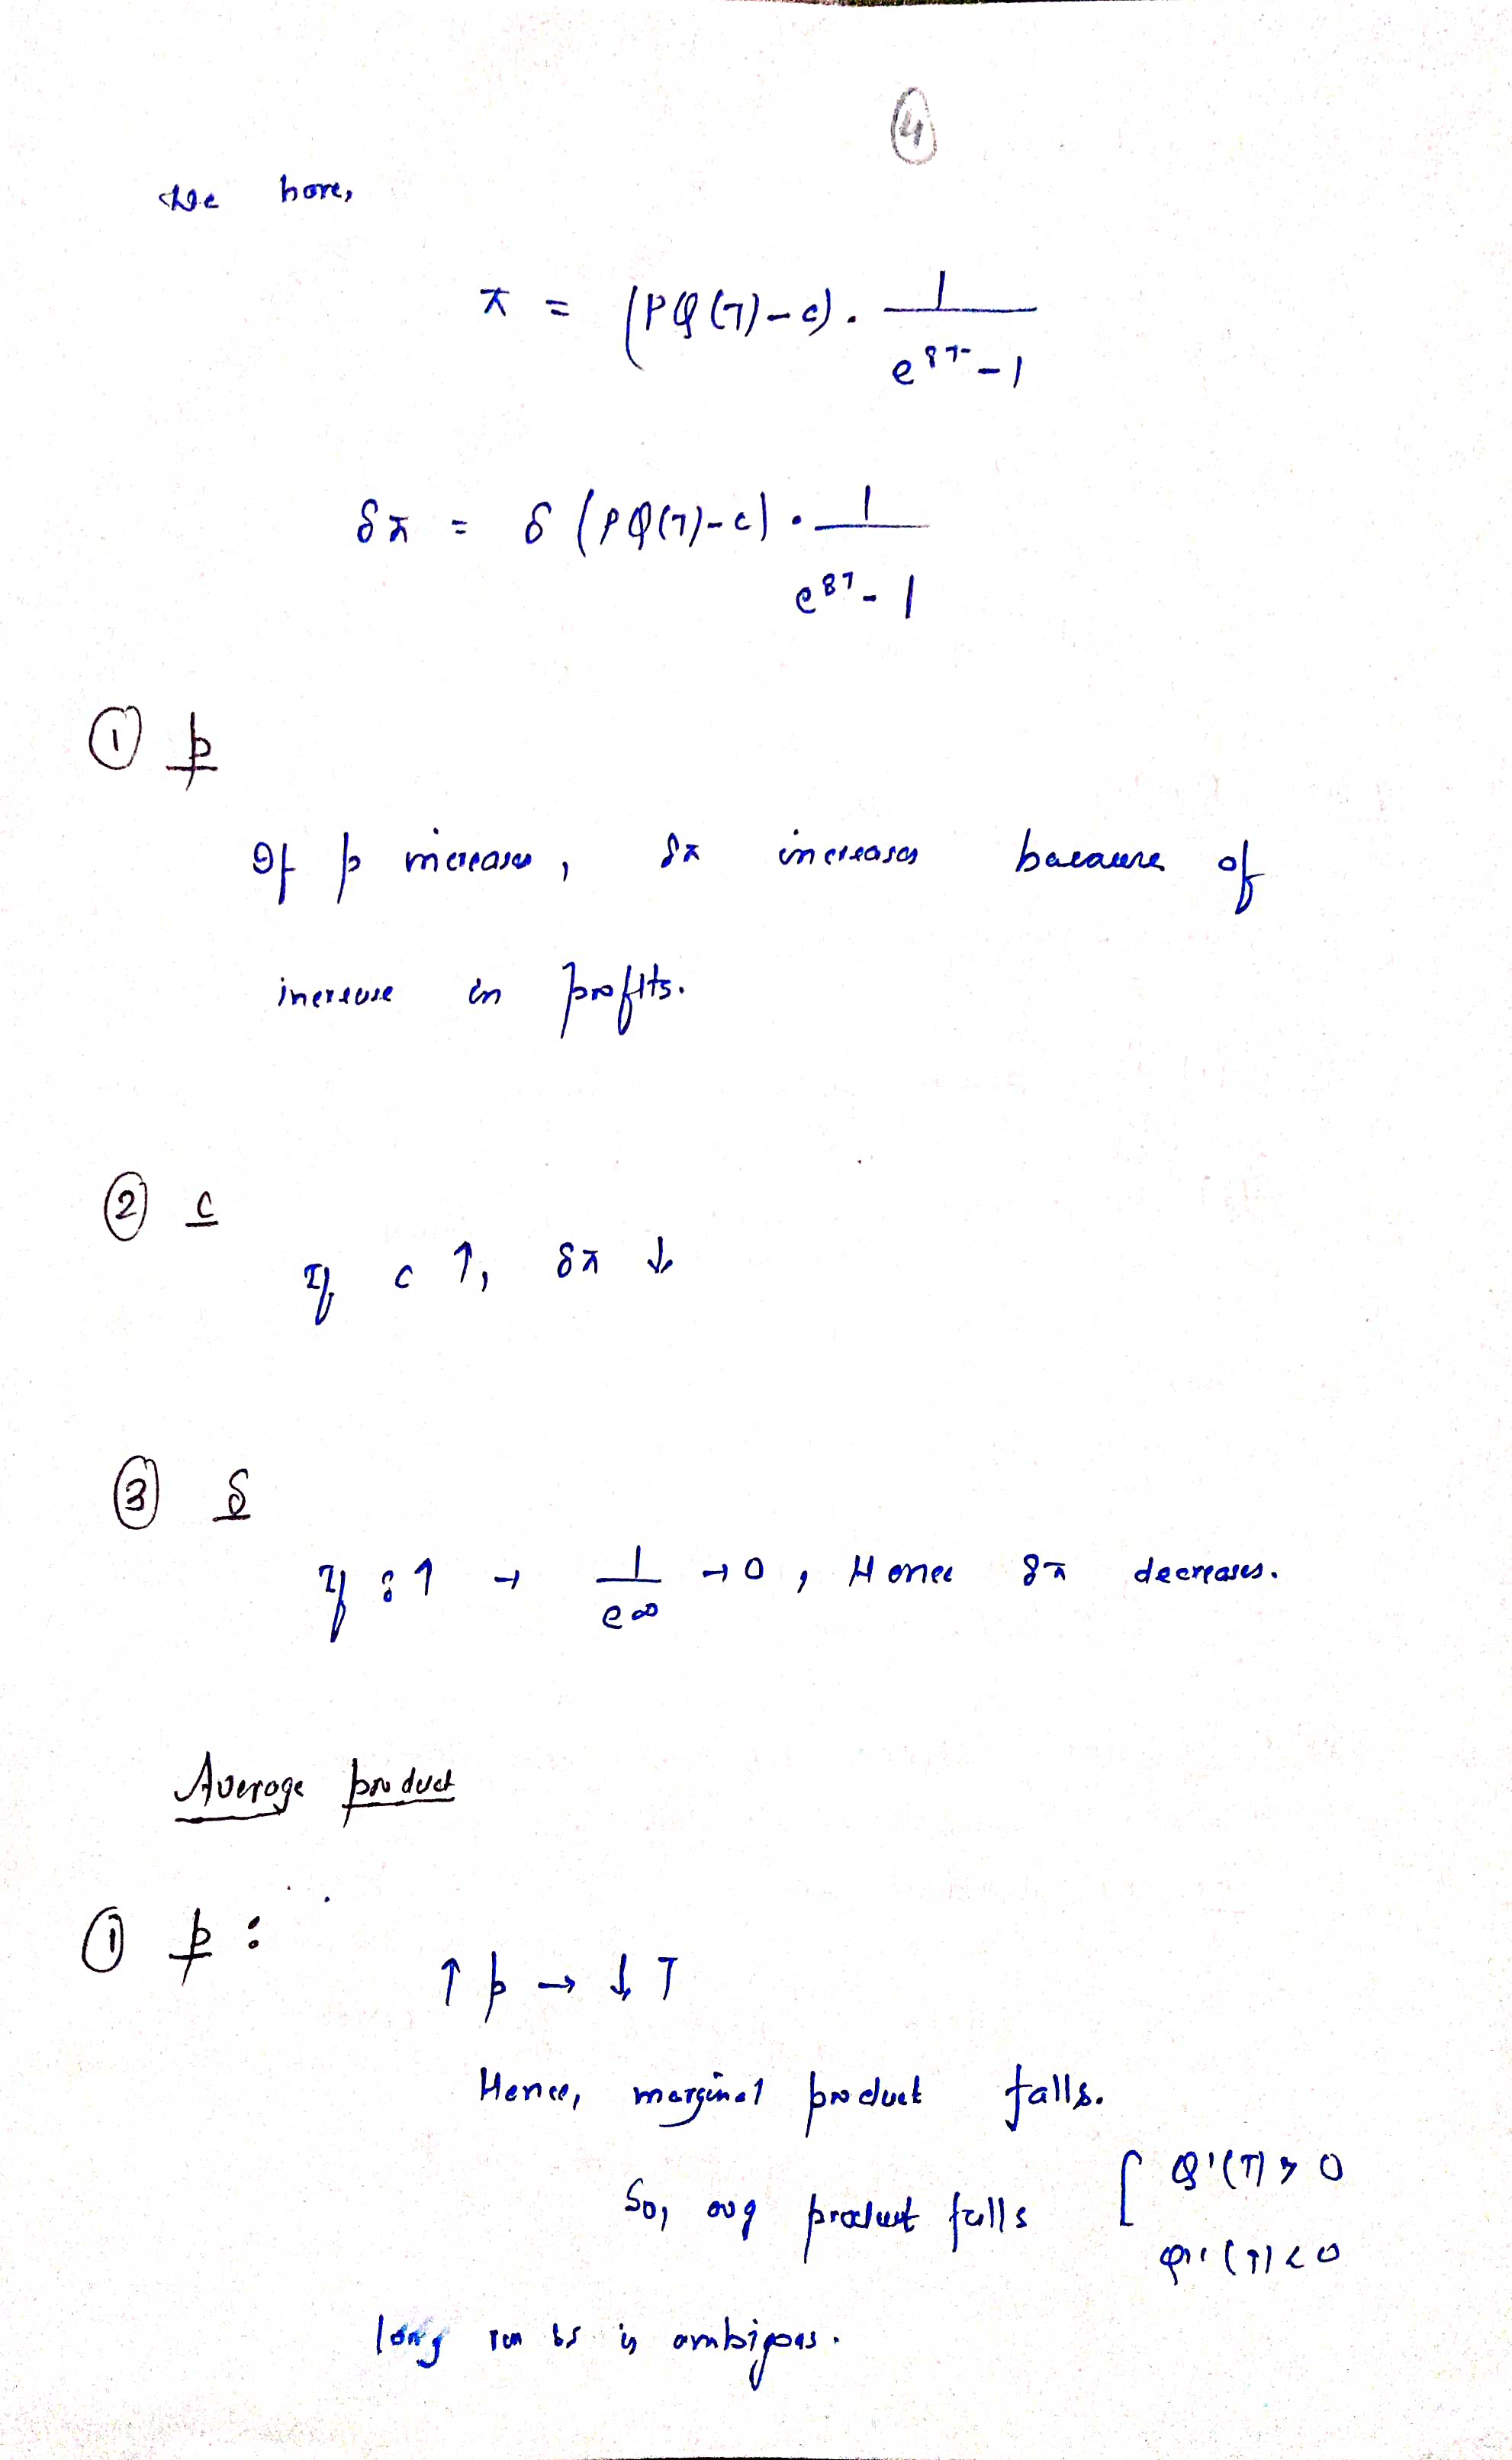 4
We have,
π = (PQ(T)-c) . 1 / e^δT - 1
δπ = δ (PQ(T)-c) . 1 / e^δT - 1
① p
If p increases, δπ increases because of
increase in profits.
② c
If c ↑, δπ ↓
③ δ
If δ ↑ → 1 / e^∞ → 0, Hence δπ decreases.
Average product
① p :
↑ p → ↓ T
Hence, marginal product falls.
So, avg product falls [ Q'(T) > 0
Q''(T) < 0
long run is ambigous.